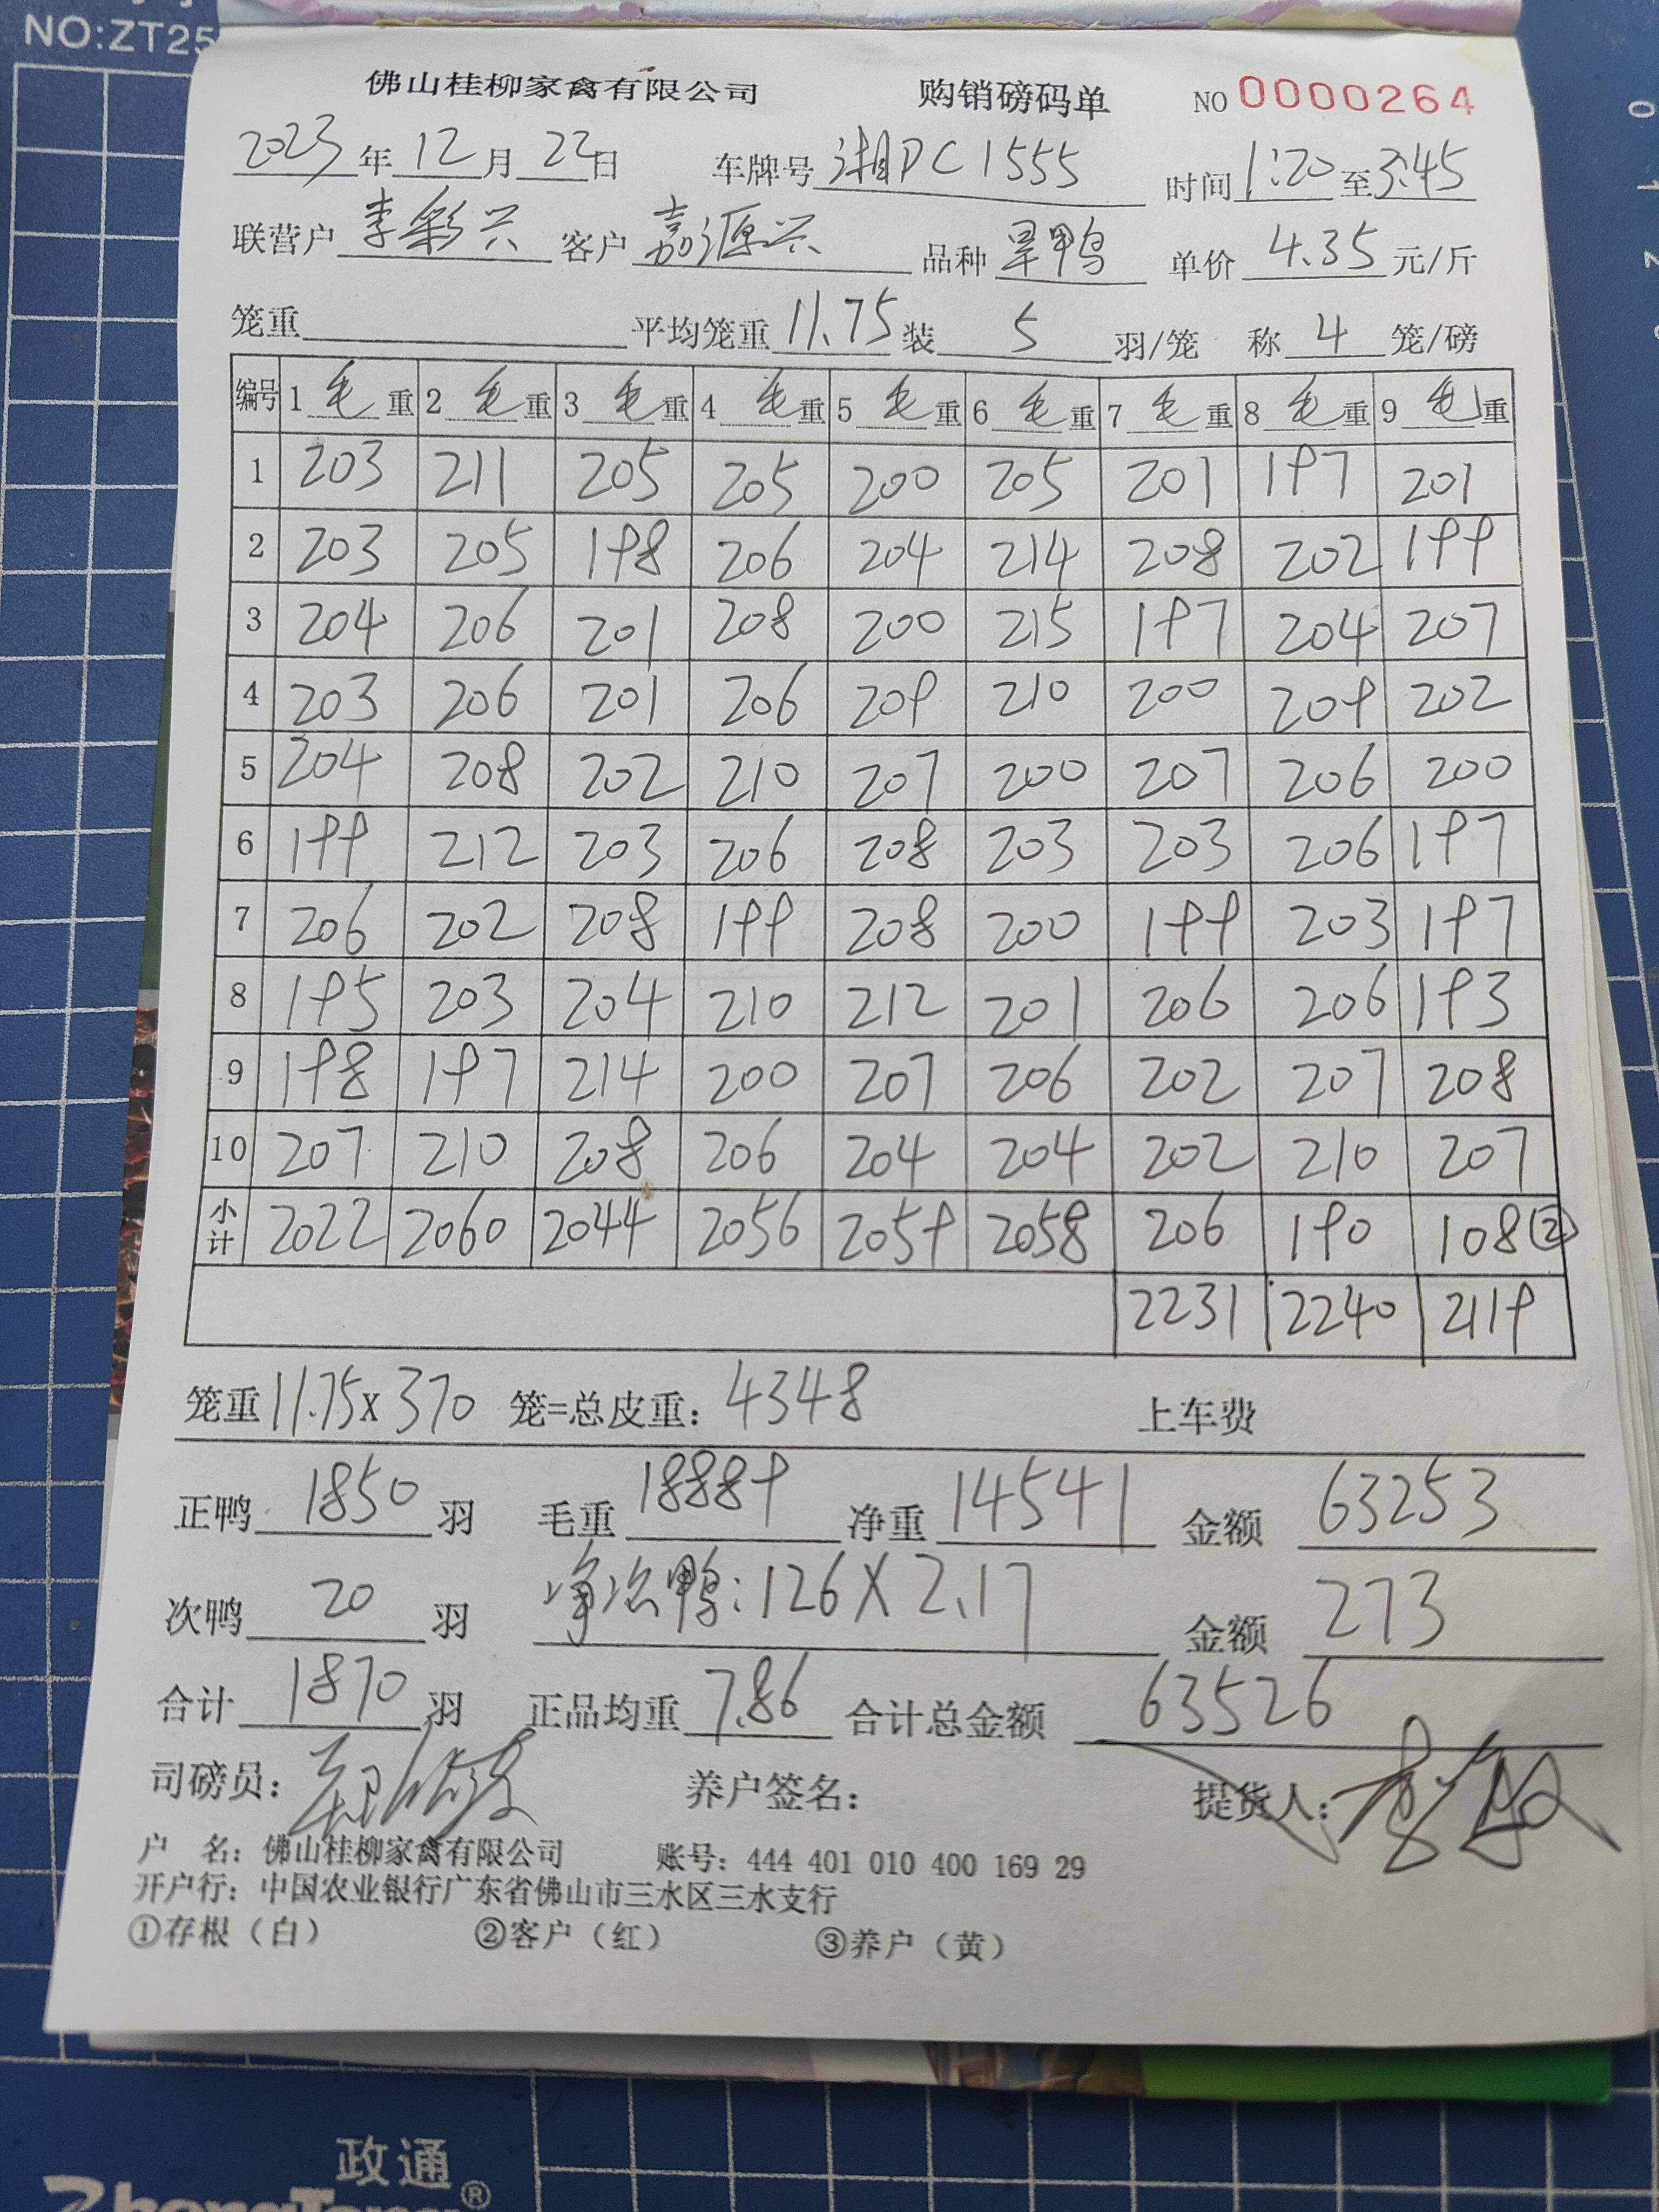 NO:ZT25
佛山桂柳家禽有限公司 购销磅码单 NO 0000264
2023年12月22日 车牌号 湘DC1555 时间 1:20 至 3:45
联营户 李彩兴 客户 嘉源兴 品种 旱鸭 单价 4.35 元/斤
笼重 平均笼重 11.75 装 5 羽/笼 称 4 笼/磅
编号 1 毛重 2 毛重 3 毛重 4 毛重 5 毛重 6 毛重 7 毛重 8 毛重 9 毛重
1 203 211 205 205 200 205 201 197 201
2 203 205 198 206 204 214 208 202 199
3 204 206 201 208 200 215 197 204 207
4 203 206 201 206 209 210 200 209 202
5 204 208 202 210 207 200 207 206 200
6 199 212 203 206 208 203 203 206 197
7 206 202 208 199 208 200 199 203 197
8 195 203 204 210 212 201 206 206 193
9 198 197 214 200 207 206 202 207 208
10 207 210 208 206 204 204 202 210 207
小计 2022 2060 2044 2056 2059 2058 206 190 108②
2231 2240 2119
笼重 11.75 x 370 笼=总皮重: 4348 上车费
正鸭 1850 羽 毛重 18889 净重 14541 金额 63253
次鸭 20 羽 净次鸭: 126 X 2.17 金额 273
合计 1870 羽 正品均重 7.86 合计总金额 63526
司磅员: 养户签名: 提货人:
户 名: 佛山桂柳家禽有限公司 账号: 444 401 010 400 169 29
开户行: 中国农业银行广东省佛山市三水区三水支行
①存根(白) ②客户(红) ③养户(黄)
政通